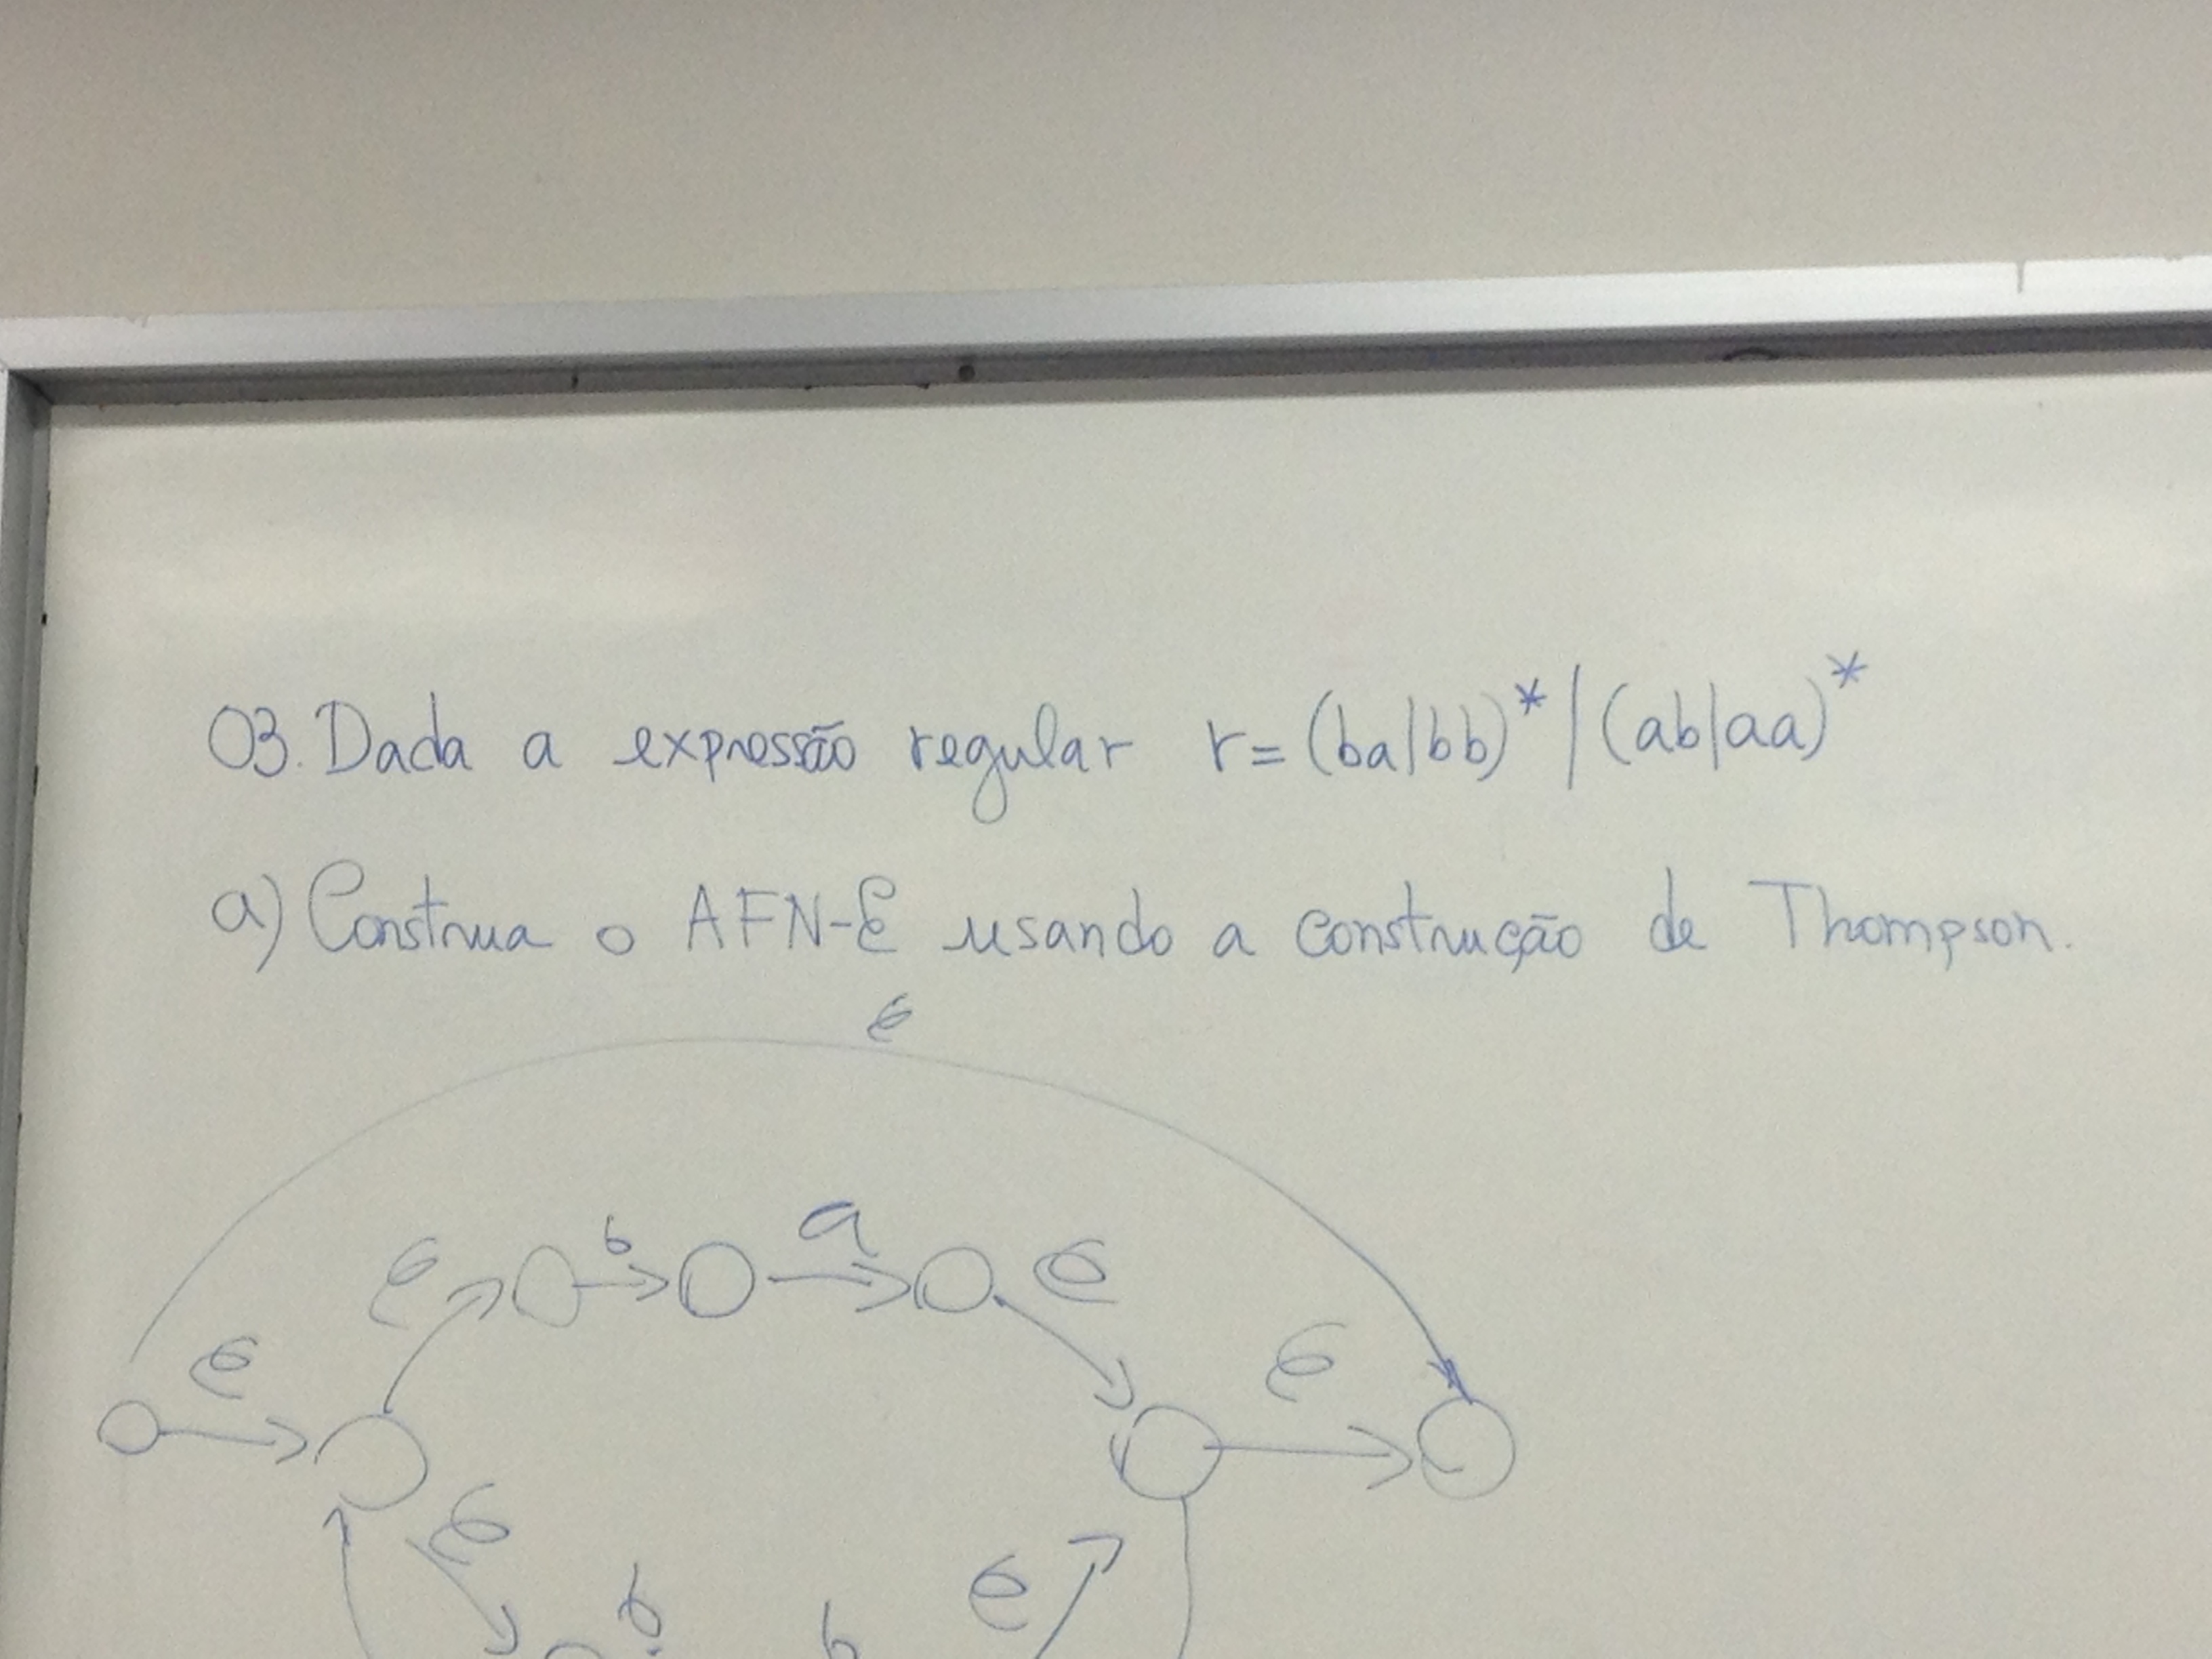 03. Dada a expressão regular r = (ba|bb)* | (ab|aa)*
a) Construa o AFN-Ɛ usando a construção de Thompson.
Ɛ
Ɛ b a Ɛ
Ɛ Ɛ
Ɛ b b Ɛ